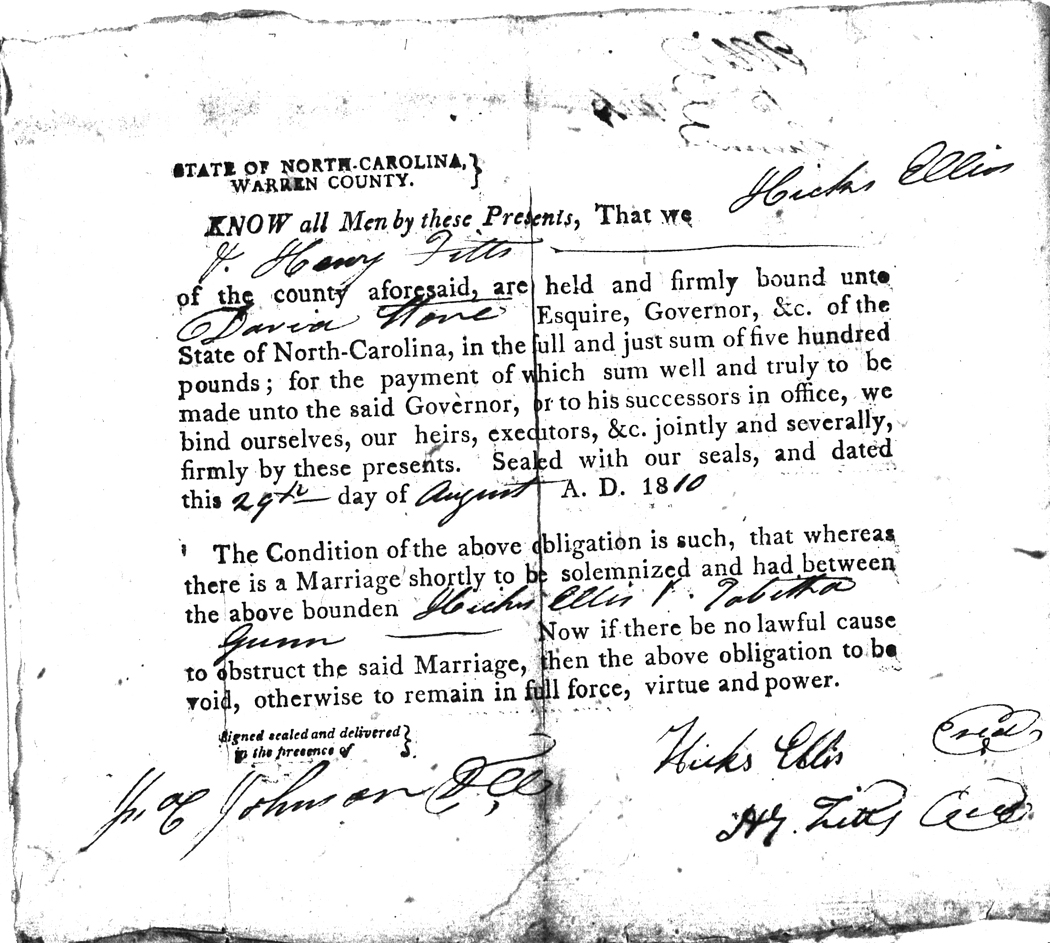 STATE OF NORTH-CAROLINA, }
WARREN COUNTY.
KNOW all Men by these Presents, That we Hicks Ellis
& Henry Fitts
of the county aforesaid, are held and firmly bound unto
David Stone Esquire, Governor, &c. of the
State of North-Carolina, in the full and just sum of five hundred
pounds; for the payment of which sum well and truly to be
made unto the said Governor, or to his successors in office, we
bind ourselves, our heirs, executors, &c. jointly and severally,
firmly by these presents. Sealed with our seals, and dated
this 29th day of August A. D. 1810
The Condition of the above obligation is such, that whereas
there is a Marriage shortly to be solemnized and had between
the above bounden Hicks Ellis & Tabitha
Gunn Now if there be no lawful cause
to obstruct the said Marriage, then the above obligation to be
void, otherwise to remain in full force, virtue and power.
Signed sealed and delivered }
in the presence of
Hicks Ellis
Johnson
Hy. Fitts